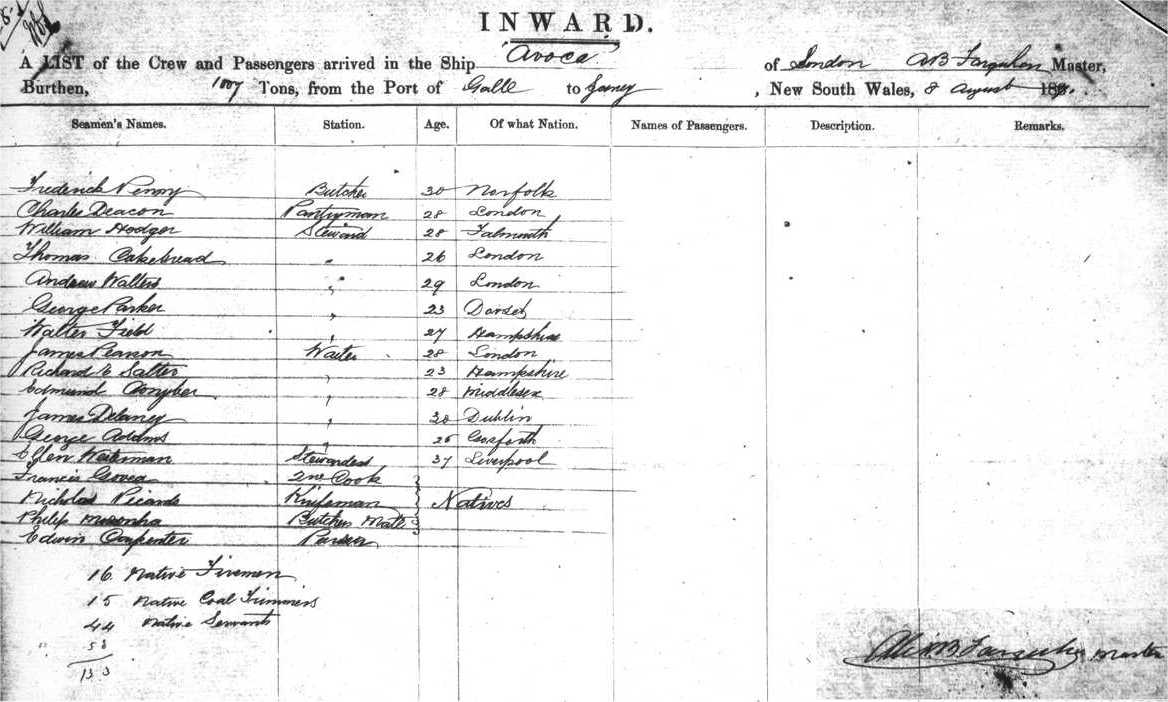 INWARD.
A LIST of the Crew and Passengers arrived in the Ship "Avoca" of London AB Farquhar Master,
Burthen, 1007 Tons, from the Port of Galle to Sydney, New South Wales, 8 August 18
Seamen's Names. Station. Age. Of what Nation. Names of Passengers. Description. Remarks.
Frederick Penny Butcher 30 Norfolk
Charles Deacon Pantryman 28 London
William Hodger Steward 28 Falmouth
Thomas Cakebread " 26 London
Andrew Walters " 29 London
George Parker " 23 Dorset
Walter Field " 27 Hampshire
James Pearson Waiter 28 London
Richard E Salter " 23 Hampshire
Edmund " 28 Middlesex
James Delaney " 38 Dublin
George Addams " 25 Gosforth
Ellen Waterman Stewardess 37 Liverpool
Francis Govea Cook
Nicholas Picardo Knifeman Natives
Philip Butchers Mate
Edwin Carpenter Purser
16 Native Firemen
15 Native Coal Trimmers
44 Native Servants
58
133
Alex B Farquhar Master